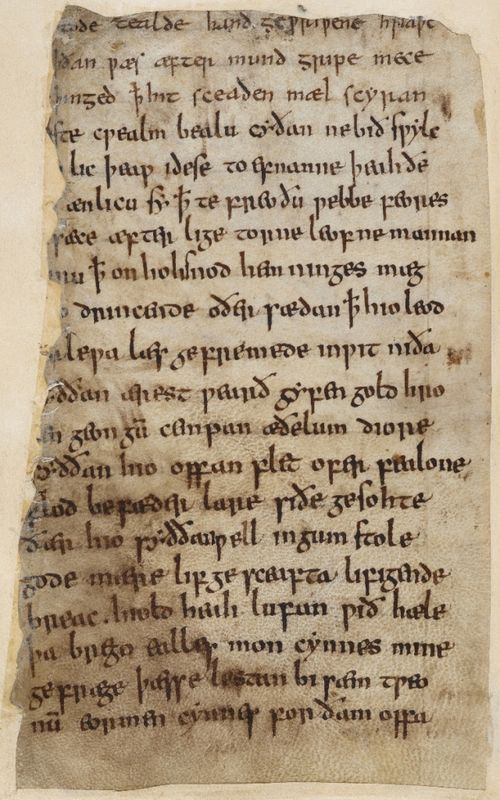 tode tealde hand geƿriþene hraþe
ðan ƿæs æfter mund gripe mece
þinged ꝥ hit sceaden mæl scyran
ste cƿealm bealu cyðan ne bið sƿylc
lic þeaƿ idese to efnanne þeah ðe
ænlicu sy ꝥ te freoðu ƿebbe feores
sæce æfter lige torne leofne mannan
ru ꝥ on hohsnod hem ninges mæg
o drincende oðer sædan ꝥ hio leod
aleƿa læs ge fremede inƿit niða
yððan ærest ƿearð gyfen gold hro
en geongū cempan æðelum diore
syððan hio offan flet ofer fealone
flod be fæder lare siðe gesohte
ðær hio syððan ƿell in gum stole
gode mære lif ge sceafta lifigende
breac. hiold heah lufan ƿið hæle
þa brego ealles mon cynnes mine
gefræge þæs se lestan bi sæm tƿeo
nū eormen cynnes for ðam offa